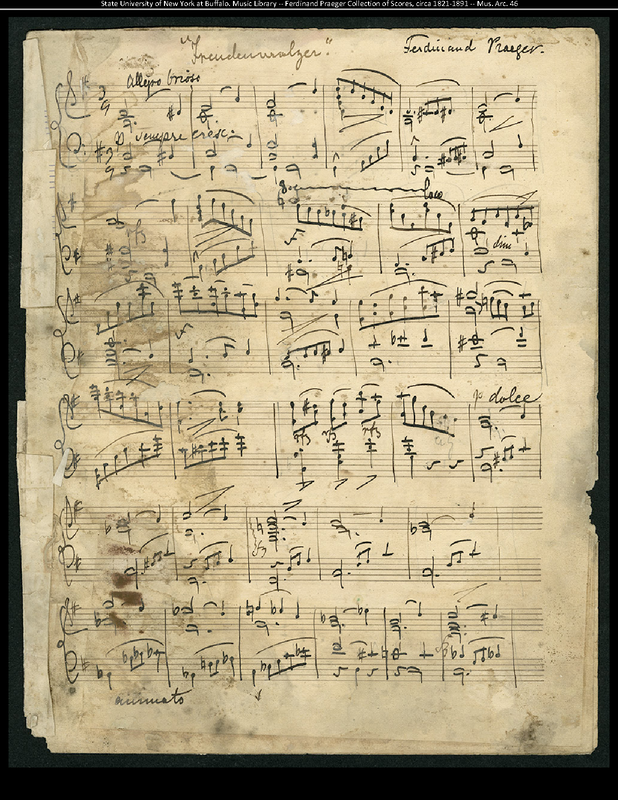 State University of New York at Buffalo. Music Library -- Ferdinand Praeger Collection of Scores, circa 1821-1891 -- Mus. Arc. 46
"Freudenwalzer." Ferdinand Praeger.
Allegro brioso
p sempre cresc:
8 loco
dim
p dolce
rfz rfz rfz
animato